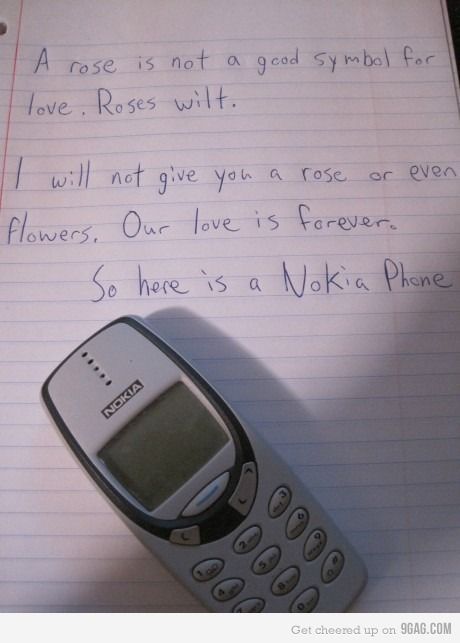 A rose is not a good symbol for
love. Roses wilt.
I will not give you a rose or even
flowers. Our love is forever.
So here is a Nokia Phone
NOKIA
Get cheered up on 9GAG.COM